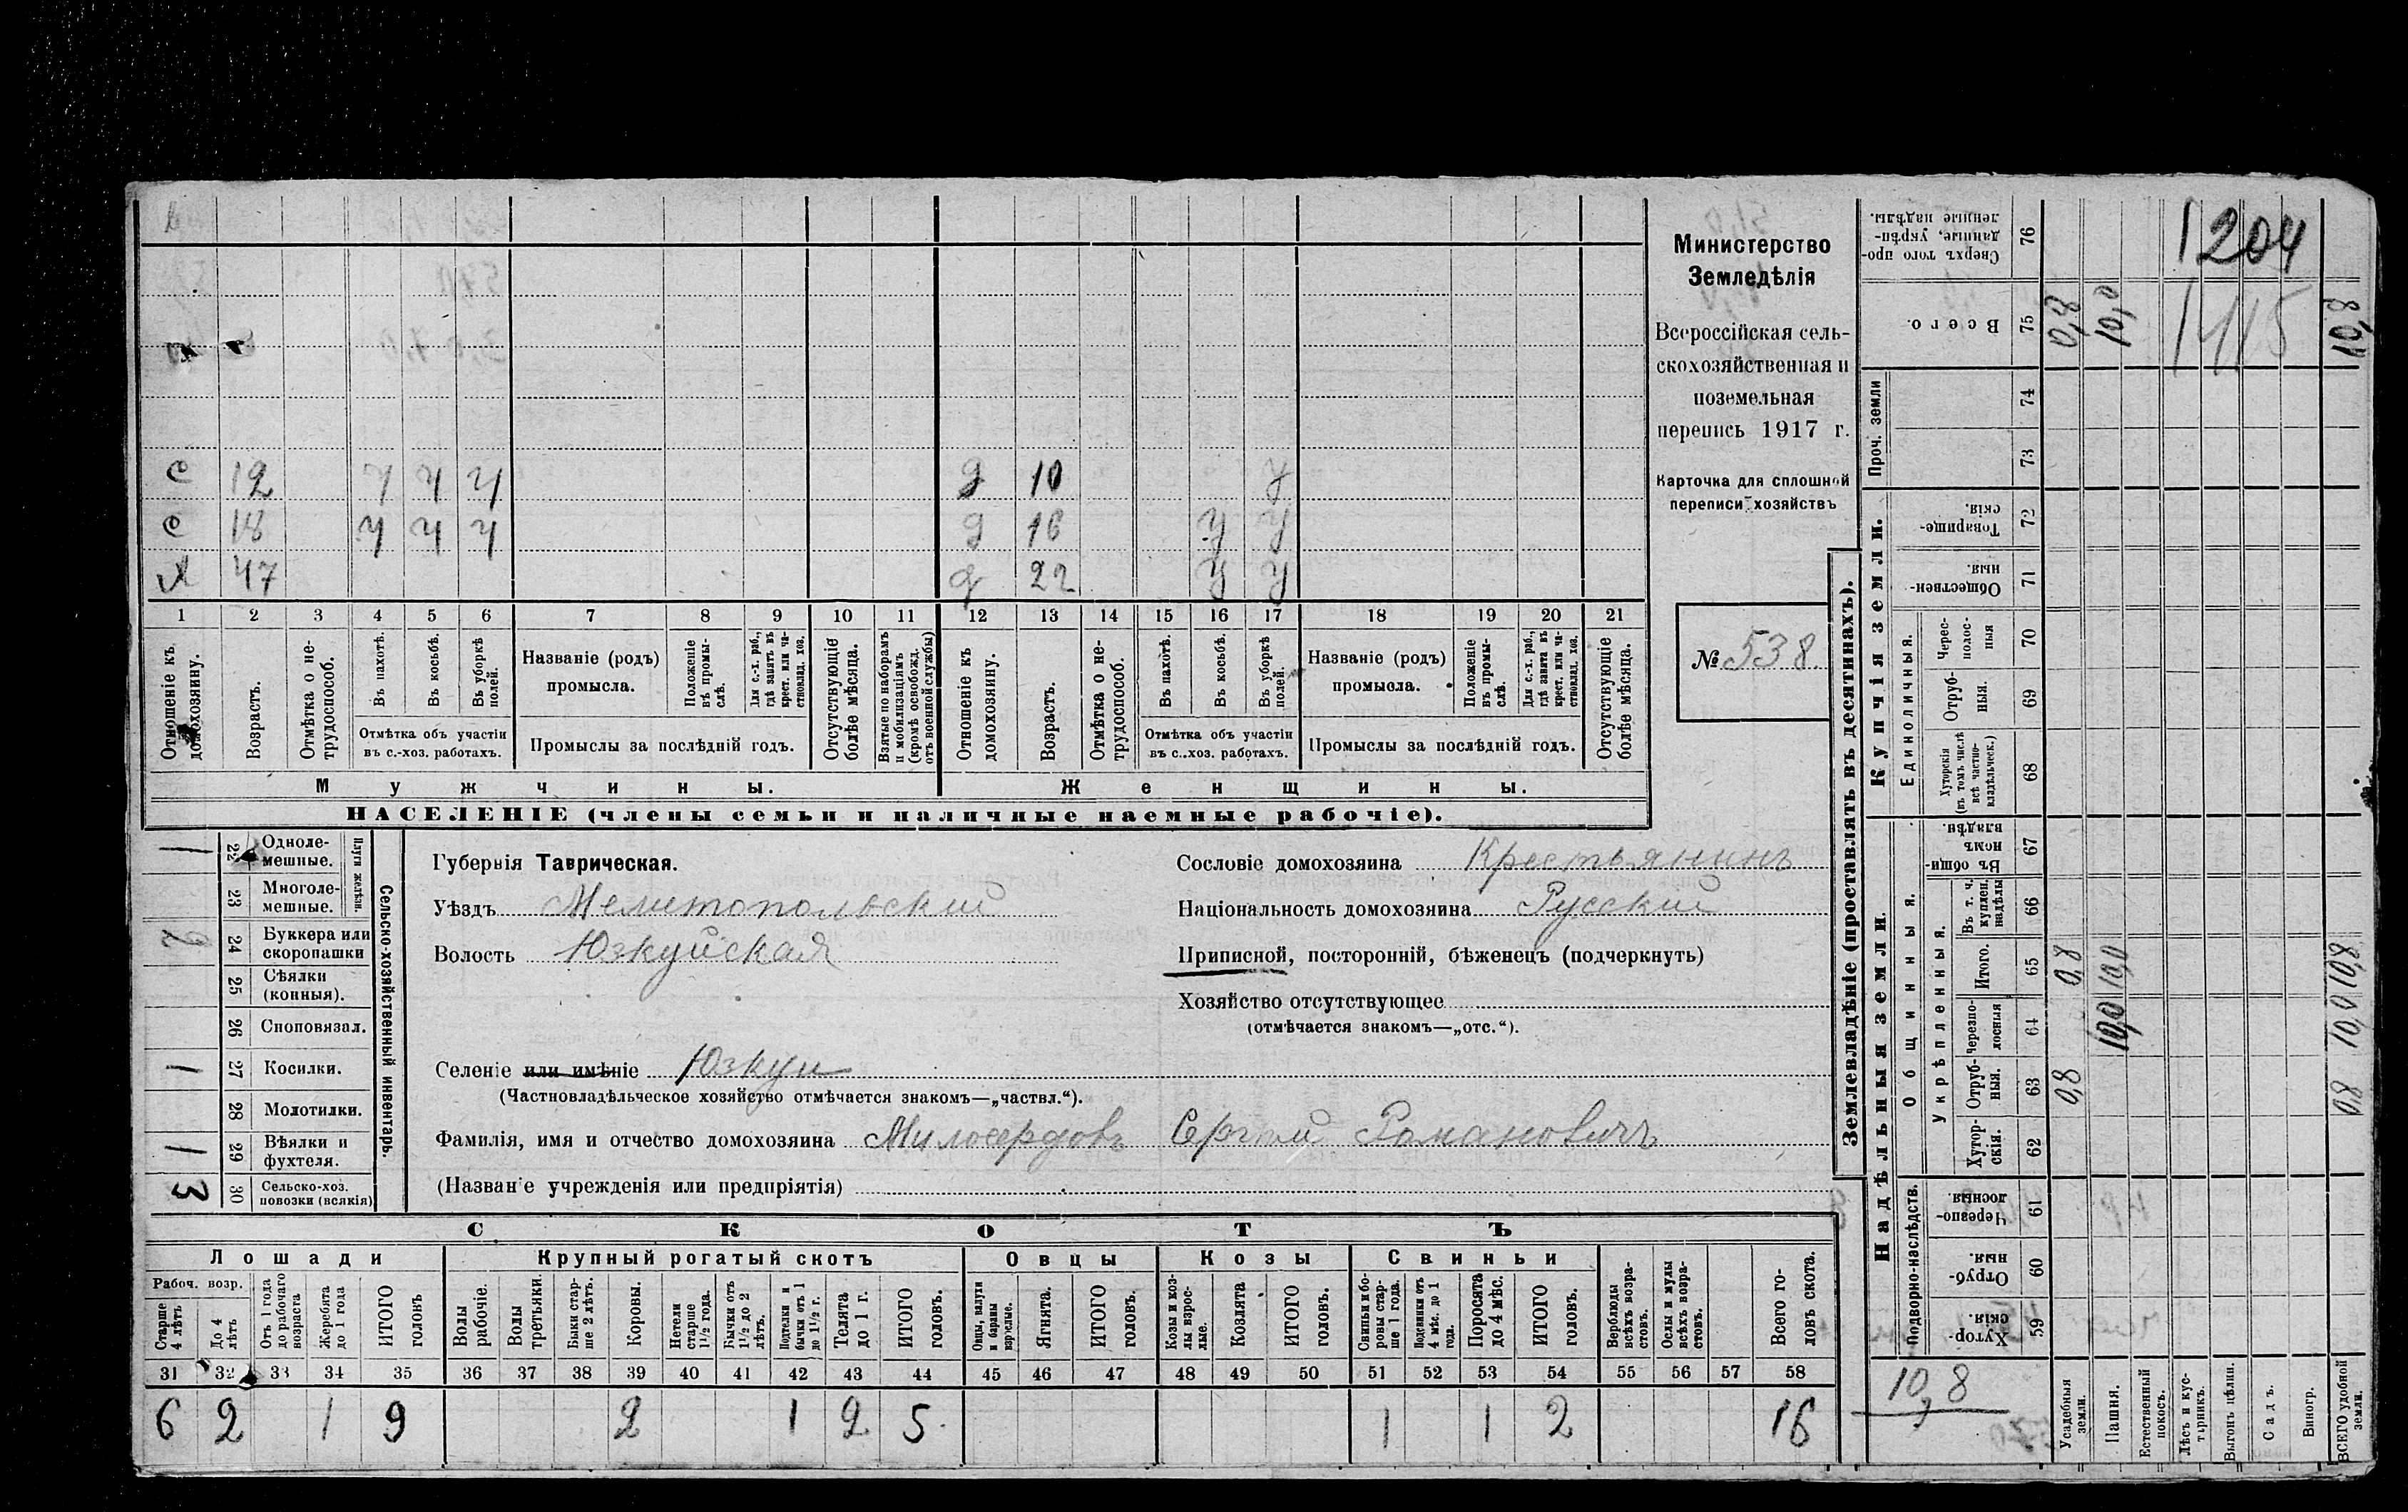 Министерство
Земледѣлія
Всероссійская сель-
скохозяйственная и
поземельная
перепись 1917 г.
Карточка для сплошной
переписи хозяйствъ
№ 538.
с 12 ч ч ч д 10 у
с 18 ч ч ч д 16 у у
х 47 д 22 у у
1 2 3 4 5 6 7 8 9 10 11 12 13 14 15 16 17 18 19 20 21
Отношеніе къ домохозяину.
Возрастъ.
Отмѣтка о не-трудоспособ.
Въ пахотѣ.
Въ косьбѣ.
Въ уборкѣ полей.
Отмѣтка объ участіи
въ с.-хоз. работахъ.
Названіе (родъ)
промысла.
Положеніе въ промы-слѣ.
Для с.-х. раб., гдѣ занятъ въ крест. или ча-стновлад. хоз.
Промыслы за послѣдній годъ.
Отсутствующіе болѣе мѣсяца.
Взятые по наборамъ и мобилизаціямъ (кромѣ освобожд. отъ военной службы)
Отношеніе къ домохозяину.
Возрастъ.
Отмѣтка о не-трудоспособ.
Въ пахотѣ.
Въ косьбѣ.
Въ уборкѣ полей.
Отмѣтка объ участіи
въ с.-хоз. работахъ.
Названіе (родъ)
промысла.
Положеніе въ промы-слѣ.
Для с.-х. раб., гдѣ занята въ крест. или ча-стновлад. хоз.
Промыслы за послѣдній годъ.
Отсутствующіе болѣе мѣсяца.
Мужчины. Женщины.
НАСЕЛЕНІЕ (члены семьи и наличные наемные рабочіе).
Сельско-хозяйственный инвентарь.
Плуги желѣзн.
1 22 Одноле-мешные.
23 Многоле-мешные.
2 24 Буккера или скоропашки
25 Сѣялки (конныя).
26 Споповязал.
1 27 Косилки.
28 Молотилки.
1 29 Вѣялки и фухтеля.
3 30 Сельско-хоз. повозки (всякія)
Губернія Таврическая.
Уѣздъ Мелитопольский
Волость Юзкуйская
Селеніе или имѣніе Юзкуи
(Частновладѣльческое хозяйство отмѣчается знакомъ—„частвл.“).
Фамилія, имя и отчество домохозяина Милосердовъ Сергѣй Романовичъ
(Названіе учрежденія или предпріятія)
Сословіе домохозяина Крестьянинъ
Національность домохозяина Русский
Приписной, посторонній, бѣженецъ (подчеркнуть)
Хозяйство отсутствующее
(отмѣчается знакомъ—„отс.“).
СКОТЪ
Лошади Крупный рогатый скотъ Овцы Козы Свиньи
Рабоч. возр.
Старше 4 лѣтъ
До 4 лѣтъ
Отъ 1 года до рабочаго возраста
Жеребята до 1 года
ИТОГО головъ
Волы рабочіе.
Волы третьяки.
Быки стар-ше 2 лѣтъ.
Коровы.
Нетели старше 1½ года.
Бычки отъ 1½ до 2 лѣтъ.
Подтелки и бычки отъ 1 до 1½ г.
Телята до 1 г.
ИТОГО головъ.
Овцы, валухи и бараны взрослые.
Ягнята.
ИТОГО головъ.
Козы и коз-лы взрос-лые.
Козлята
ИТОГО головъ.
Свиньи и бо-ровы стар-ше 1 года.
Подсвинки отъ 4 мѣс. до 1 года.
Поросята до 4 мѣс.
ИТОГО головъ.
Верблюды всѣхъ возра-стовъ.
Ослы и мулы всѣхъ возра-стовъ.
Всего го-ловъ скота.
31 32 33 34 35 36 37 38 39 40 41 42 43 44 45 46 47 48 49 50 51 52 53 54 55 56 57 58
6 2 1 9 2 1 2 5 1 1 2 16
Землевладѣніе (проставлять въ десятинахъ).
Надѣльныя земли. Купчія земли. Проч. земли
Подворно-наслѣдств.
Общинныя.
Укрѣпленныя.
Единоличныя.
Хутор-скія. 59
Отруб-ныя. 60
Черезпо-лосныя 61
Хутор-скія. 62
Отруб-ныя. 63 0,8 0,8
Черезпо-лосныя 64 10,0 10,0
Итого. 65 0,8 10,0 10,8
Въ т. ч. куплен. надѣлы 66
Въ общи-номъ владѣн. 67
Хуторскія (въ томъ числѣ всѣ частно-владѣльческ.) 68
Отруб-ныя. 69
Черес-полос-ныя 70
Обществен-ныя. 71
Товарище-скія. 72
73
74
Всего. 75 0,8 10,0 10,8
Сверхъ того про-данные, укрѣп-ленные надѣлы. 76
1204
1415
10,8
Усадебныя земли.
Пашня.
Естественный покосъ.
Лѣсъ и кус-тарникъ.
Выгонъ цѣлин.
Садъ.
Виногр.
ВСЕГО удобной земли.